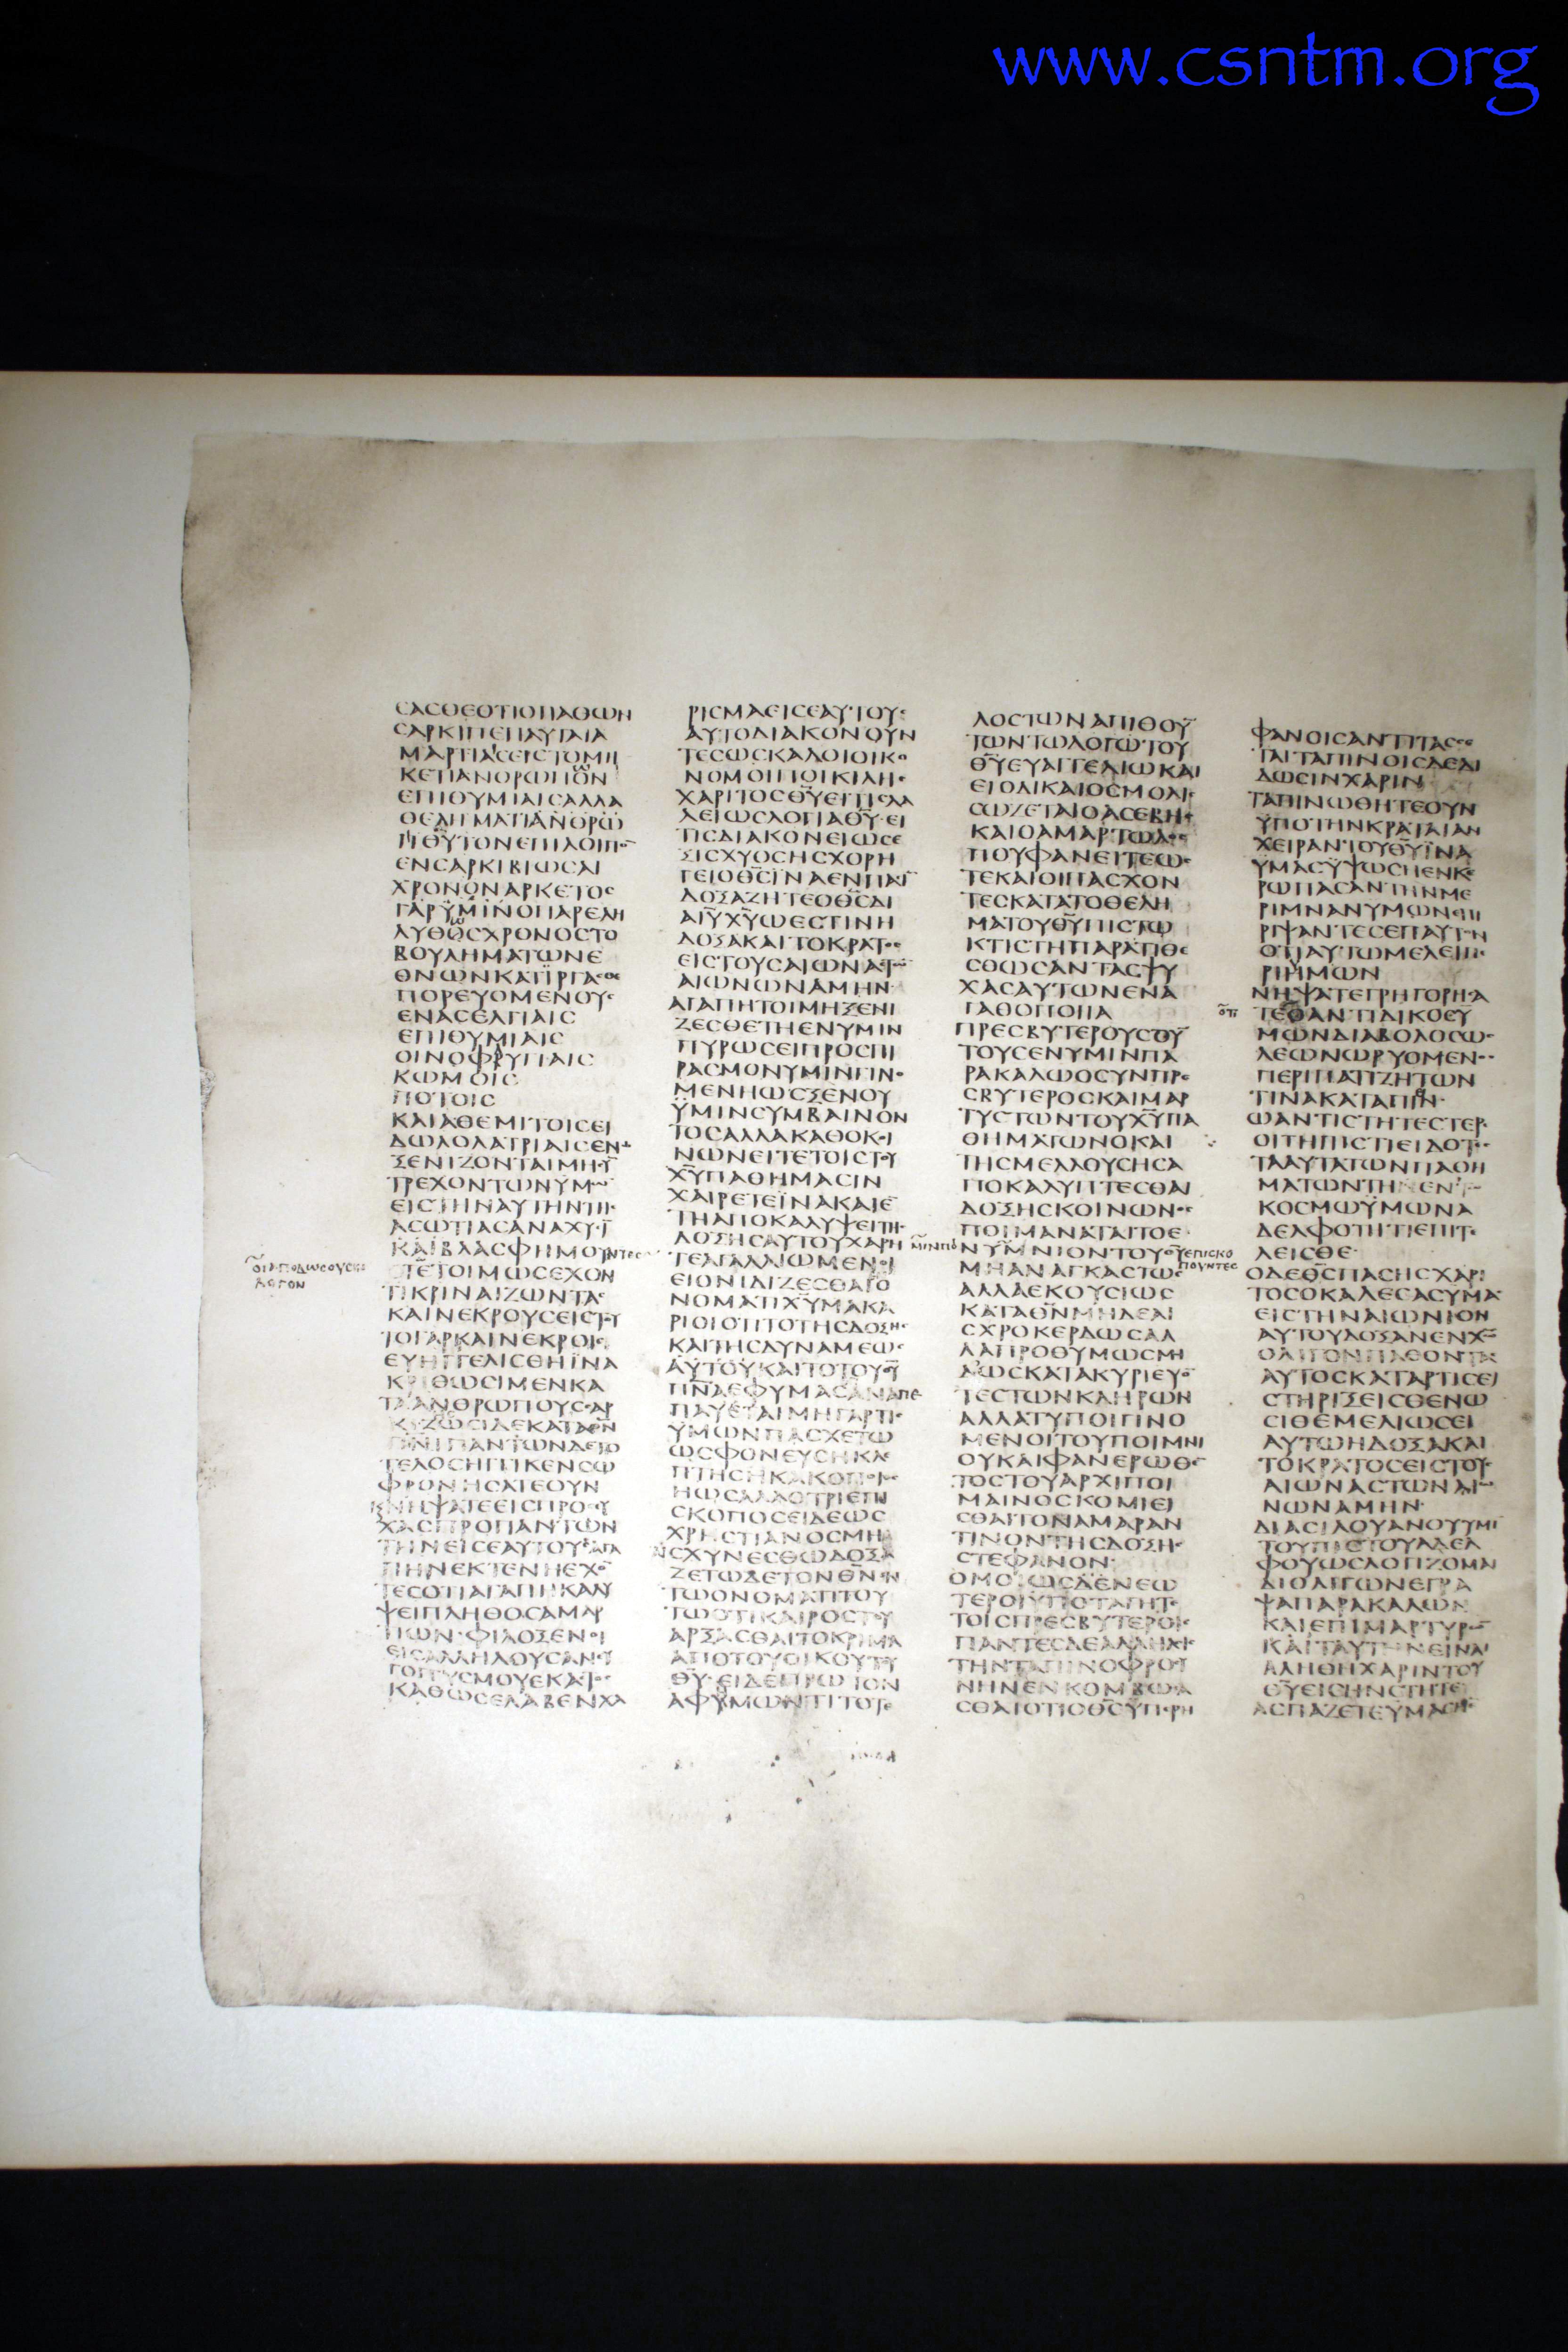 www.csntm.org
CΑCΘΕΟΤΙΟΠΑΘΩΝ
CΑΡΚΙΠΕΠΑΥΤΑΙΑ
ΜΑΡΤΙΑCΕΙCΤΟΜΗ
ΚΕΤΙΑΝΘΡΩΠΩΝ
ΕΠΙΘΥΜΙΑΙCΑΛΛΑ
ΘΕΛΗΜΑΤΙΑΝΘΡΩ
ΠΙΘΥΤΟΝΕΠΙΛΟΙΠΟ̅
ΕΝCΑΡΚΙΒΙΩCΑΙ
ΧΡΟΝΟΝΑΡΚΕΤΟC
ΓΑΡΫΜΙΝΟΠΑΡΕΛΗ
ΛΥΘΩCΧΡΟΝΟCΤΟ
ΒΟΥΛΗΜΑΤΩΝΕ
ΘΝΩΝΚΑΤΙΡΓΑCΘΕ
ΠΟΡΕΥΟΜΕΝΟΥC
ΕΝΑCΕΛΓΙΑΙC
ΕΠΙΘΥΜΙΑΙC
ΟΙΝΟΦΡΥΓΙΑΙC
ΚΩΜΟΙC
ΠΟΤΟΙC
ΚΑΙΑΘΕΜΙΤΟΙCΕΙ
ΔΩΛΟΛΑΤΡΙΑΙCΕΝΩ
ΞΕΝΙΖΟΝΤΑΙΜΗCΥ̅
ΤΡΕΧΟΝΤΩΝΥΜΩ̅
ΕΙCΤΗΝΑΥΤΗΝΤΗC
ΑCΩΤΙΑCΑΝΑΧΥCΙ̅
ΚΑΙΒΛΑCΦΗΜΟΥΝΤΕC
ΟΙΑΠΟΔΩCΟΥCΙΝ
ΛΟΓΟΝ
ΤΕΤΟΙΜΩCΕΧΟΝ
ΤΙΚΡΙΝΑΙΖΩΝΤΑC
ΚΑΙΝΕΚΡΟΥCΕΙCΤΟΥ
ΤΟΓΑΡΚΑΙΝΕΚΡΟΙC
ΕΥΗΓΓΕΛΙCΘΗΪΝΑ
ΚΡΙΘΩCΙΜΕΝΚΑ
ΤΑΑΝΘΡΩΠΟΥCCΑΡ
ΚΙΖΩCΙΔΕΚΑΤΑΘΝ
ΠΝΙΠΑΝΤΩΝΔΕΤΟ
ΤΕΛΟCΗΓΓΙΚΕΝCΩ
ΦΡΟΝΗCΑΤΕΟΥΝ
ΚΝΗΨΑΤΕΕΙCΠΡΟCΕΥ
ΧΑCΠΡΟΠΑΝΤΩΝ
ΤΗΝΕΙCΕΑΥΤΟΥCΑΓΑ
ΠΗΝΕΚΤΕΝΗΕΧΟ̅
ΤΕCΟΤΙΑΓΑΠΗΚΑΛΥ
ΨΕΙΠΛΗΘΟCΑΜΑΡ
ΤΙΩΝΦΙΛΟΞΕΝΟΙ
ΕΙCΑΛΛΗΛΟΥCΑΝΕΥ
ΓΟΓΓΥCΜΟΥΕΚΑCΤΟC
ΚΑΘΩCΕΛΑΒΕΝΧΑ
ΡΙCΜΑΕΙCΕΑΥΤΟΥC
ΑΥΤΟΔΙΑΚΟΝΟΥΝ
ΤΕCΩCΚΑΛΟΙΟΙΚΟ
ΝΟΜΟΙΠΟΙΚΙΛΗC
ΧΑΡΙΤΟCΘΥΕΙΤΙCΛΑ
ΛΕΙΩCΛΟΓΙΑΘΥ·ΕΙ
ΤΙCΔΙΑΚΟΝΕΙΩCΕ
ΞΙCΧΥΟCΗCΧΟΡΗ
ΓΕΙΟΘCΪΝΑΕΝΠΑCΙ̅
ΔΟΞΑΖΗΤΕΟΘCΔΙ
ΑΙΫΧΫΩΕCΤΙΝΗ
ΔΟΞΑΚΑΙΤΟΚΡΑΤΟC
ΕΙCΤΟΥCΑΙΩΝΑCΤΩ̅
ΑΙΩΝΩΝΑΜΗΝ
ΑΓΑΠΗΤΟΙΜΗΞΕΝΙ
ΖΕCΘΕΤΗΕΝΥΜΙΝ
ΠΥΡΩCΕΙΠΡΟCΠΙ
ΡΑCΜΟΝΥΜΙΝΓΙΝΟ
ΜΕΝΗΩCΞΕΝΟΥ
ΫΜΙΝCΥΜΒΑΙΝΟΝ
ΤΟCΑΛΛΑΚΑΘΟΚΟΙ
ΝΩΝΕΙΤΕΤΟΙCΤΟΥ
ΧΥΠΑΘΗΜΑCΙΝ
ΧΑΙΡΕΤΕΪΝΑΚΑΙΕ̅
ΤΗΑΠΟΚΑΛΥΨΕΙΤΗC
ΔΟΞΗCΑΥΤΟΥΧΑΡΗ
ΤΕΑΓΑΛΛΙΩΜΕΝΟΙ
ΕΙΟΝΙΔΙΖΕCΘΑΙΟ
ΝΟΜΑΤΙΧΥΜΑΚΑ
ΡΙΟΙΟΤΙΤΟΤΗCΔΟΞΗC
ΚΑΙΤΗCΔΥΝΑΜΕΩC
ΑΥΤΟΥΚΑΙΤΟΤΟΥΘΥ
ΠΝΑΕΦΥΜΑCΑΝΑΠΕ
ΠΑΥΕΤΑΙΜΗΓΑΡΤΙC
ΥΜΩΝΠΑCΧΕΤΩ
ΩCΦΟΝΕΥCΗΚΛΕ
ΠΤΗCΗΚΑΚΟΠΟΙΟC
ΗΩCΑΛΛΟΤΡΙΕΠΙ
CΚΟΠΟCΕΙΔΕΩC
ΧΡΗCΤΙΑΝΟCΜΗ
ΑΙCΧΥΝΕCΘΩΔΟΞΑ
ΖΕΤΩΔΕΤΟΝΘΝΕΝ
ΤΩΟΝΟΜΑΤΙΤΟΥ
ΤΩΟΤΙΚΑΙΡΟCΤΟΥ
ΑΡΞΑCΘΑΙΤΟΚΡΙΜΑ
ΑΠΟΤΟΥΟΙΚΟΥΤΟΥ
ΘΥ·ΕΙΔΕΠΡΩΤΟΝ
ΑΦΥΜΩΝΤΙΤΟΤΕ
ΛΟCΤΩΝΑΠΙΘΟΥ̅
ΤΩΝΤΩΛΟΓΩΤΟΥ
ΘΥΕΥΑΓΓΕΛΙΩΚΑΙ
ΕΙΟΔΙΚΑΙΟCΜΟΛΙC
CΩΖΕΤΑΙΟΑCΕΒΗC
ΚΑΙΟΑΜΑΡΤΩΛΟC
ΠΟΥΦΑΝΕΙΤΕΩC
ΤΕΚΑΙΟΙΠΑCΧΟΝ
ΤΕCΚΑΤΑΤΟΘΕΛΗ
ΜΑΤΟΥΘΥΠΙCΤΩ
ΚΤΙCΤΗΠΑΡΑΤΙΘΕ
CΘΩCΑΝΤΑCΨΥ
ΧΑCΑΥΤΩΝΕΝΑ
ΓΑΘΟΠΟΙΙΑ
ΠΡΕCΒΥΤΕΡΟΥCΟΥ̅
ΤΟΥCΕΝΥΜΙΝΠΑ
ΡΑΚΑΛΩΟCΥΝΠΡΕ
CΒΥΤΕΡΟCΚΑΙΜΑΡ
ΤΥCΤΩΝΤΟΥΧΥΠΑ
ΘΗΜΑΤΩΝΟΚΑΙ
ΤΗCΜΕΛΛΟΥCΗCΑ
ΠΟΚΑΛΥΠΤΕCΘΑΙ
ΔΟΞΗCΚΟΙΝΩΝΟC
ΠΟΙΜΑΝΑΤΑΙΤΟΕ
ΜΙΝΠΟΝΥΜΝΙΟΝΤΟΥΘΥΕΠΙCΚΟ
ΠΟΥΝΤΕC
ΜΗΑΝΑΓΚΑCΤΩC
ΑΛΛΑΕΚΟΥCΙΩC
ΚΑΤΑΘΝΜΗΔΕΑΙ
CΧΡΟΚΕΡΔΩCΑΛ
ΛΑΠΡΟΘΥΜΩCΜΗ
ΔΩCΚΑΤΑΚΥΡΙΕΥΟ̅
ΤΕCΤΩΝΚΛΗΡΩΝ
ΑΛΛΑΤΥΠΟΙΓΙΝΟ
ΜΕΝΟΙΤΟΥΠΟΙΜΝΙ
ΟΥΚΑΙΦΑΝΕΡΩΘΕ̅
ΤΟCΤΟΥΑΡΧΙΠΟΙ
ΜΑΙΝΟCΚΟΜΙΕΙ
CΘΑΙΤΟΝΑΜΑΡΑΝ
ΤΙΝΟΝΤΗCΔΟΞΗC
CΤΕΦΑΝΟΝ
ΟΜΟΙΩCΔΕΝΕΩ
ΤΕΡΟΙΫΠΟΤΑΓΗΤΕ
ΤΟΙCΠΡΕCΒΥΤΕΡΟΙC
ΠΑΝΤΕCΔΕΑΛΛΗΛΟΙC
ΤΗΝΤΑΠΙΝΟΦΡΟCΥ
ΝΗΝΕΝΚΟΜΒΩCΑ
CΘΑΙΟΤΙΟΘCΫΠΕΡΗ
ΦΑΝΟΙCΑΝΤΙΤΑCCΕ
ΤΑΙΤΑΠΙΝΟΙCΔΕΔΙ
ΔΩCΙΝΧΑΡΙΝ
ΤΑΠΙΝΩΘΗΤΕΟΥΝ
ΫΠΟΤΗΝΚΡΑΤΑΙΑΝ
ΧΕΙΡΑΝΤΟΥΘΥΪΝΑ
ΫΜΑCΫΨΩCΗΕΝΚΕ
ΡΩΠΑCΑΝΤΗΝΜΕ
ΡΙΜΝΑΝΥΜΩΝΕΠΙ
ΡΙΨΑΝΤΕCΕΠΑΥΤΟΝ
ΟΤΙΑΥΤΩΜΕΛΕΙΠΕ
ΡΙΗΜΩΝ
ΝΗΨΑΤΕΓΡΗΓΟΡΗCΑ
ΟΤΙ
ΤΕΟΑΝΤΙΔΙΚΟCΥ
ΜΩΝΔΙΑΒΟΛΟCΩC
ΛΕΩΝΩΡΥΟΜΕΝΟC
ΠΕΡΙΠΑΤΙΖΗΤΩΝ
ΤΙΝΑΚΑΤΑΠΙΝ
ΩΑΝΤΙCΤΗΤΕCΤΕΡΕ
ΟΙΤΗΠΙCΤΙΕΙΔΟΤΕC
ΤΑΑΥΤΑΤΩΝΠΑΘΗ
ΜΑΤΩΝΤΗΕΝΤΩ
ΚΟCΜΩΫΜΩΝΑ
ΔΕΛΦΟΤΗΤΙΕΠΙΤΕ
ΛΕΙCΘΕ
ΟΔΕΘCΠΑCΗCΧΑΡΙ
ΤΟCΟΚΑΛΕCΑCΥΜΑC
ΕΙCΤΗΝΑΙΩΝΙΟΝ
ΑΥΤΟΥΔΟΞΑΝΕΝΧΩ
ΟΛΙΓΟΝΠΑΘΟΝΤΑC
ΑΥΤΟCΚΑΤΑΡΤΙCΕΙ
CΤΗΡΙΞΕΙCΘΕΝΩ
CΙΘΕΜΕΛΙΩCΕΙ
ΑΥΤΩΗΔΟΞΑΚΑΙ
ΤΟΚΡΑΤΟCΕΙCΤΟΥC
ΑΙΩΝΑCΤΩΝΑΙΩ
ΝΩΝΑΜΗΝ
ΔΙΑCΙΛΟΥΑΝΟΥΥΜΙ
ΤΟΥΠΙCΤΟΥΑΔΕΛ
ΦΟΥΩCΛΟΓΙΖΟΜΑΙ
ΔΙΟΛΙΓΩΝΕΓΡΑ
ΨΑΠΑΡΑΚΑΛΩΝ
ΚΑΙΕΠΙΜΑΡΤΥΡΩ̅
ΚΑΙΤΑΥΤΗΝΕΙΝΑΙ
ΑΛΗΘΗΧΑΡΙΝΤΟΥ
ΘΥΕΙCΗΝCΤΗΤΕ
ΑCΠΑΖΕΤΕΥΜΑCΗ